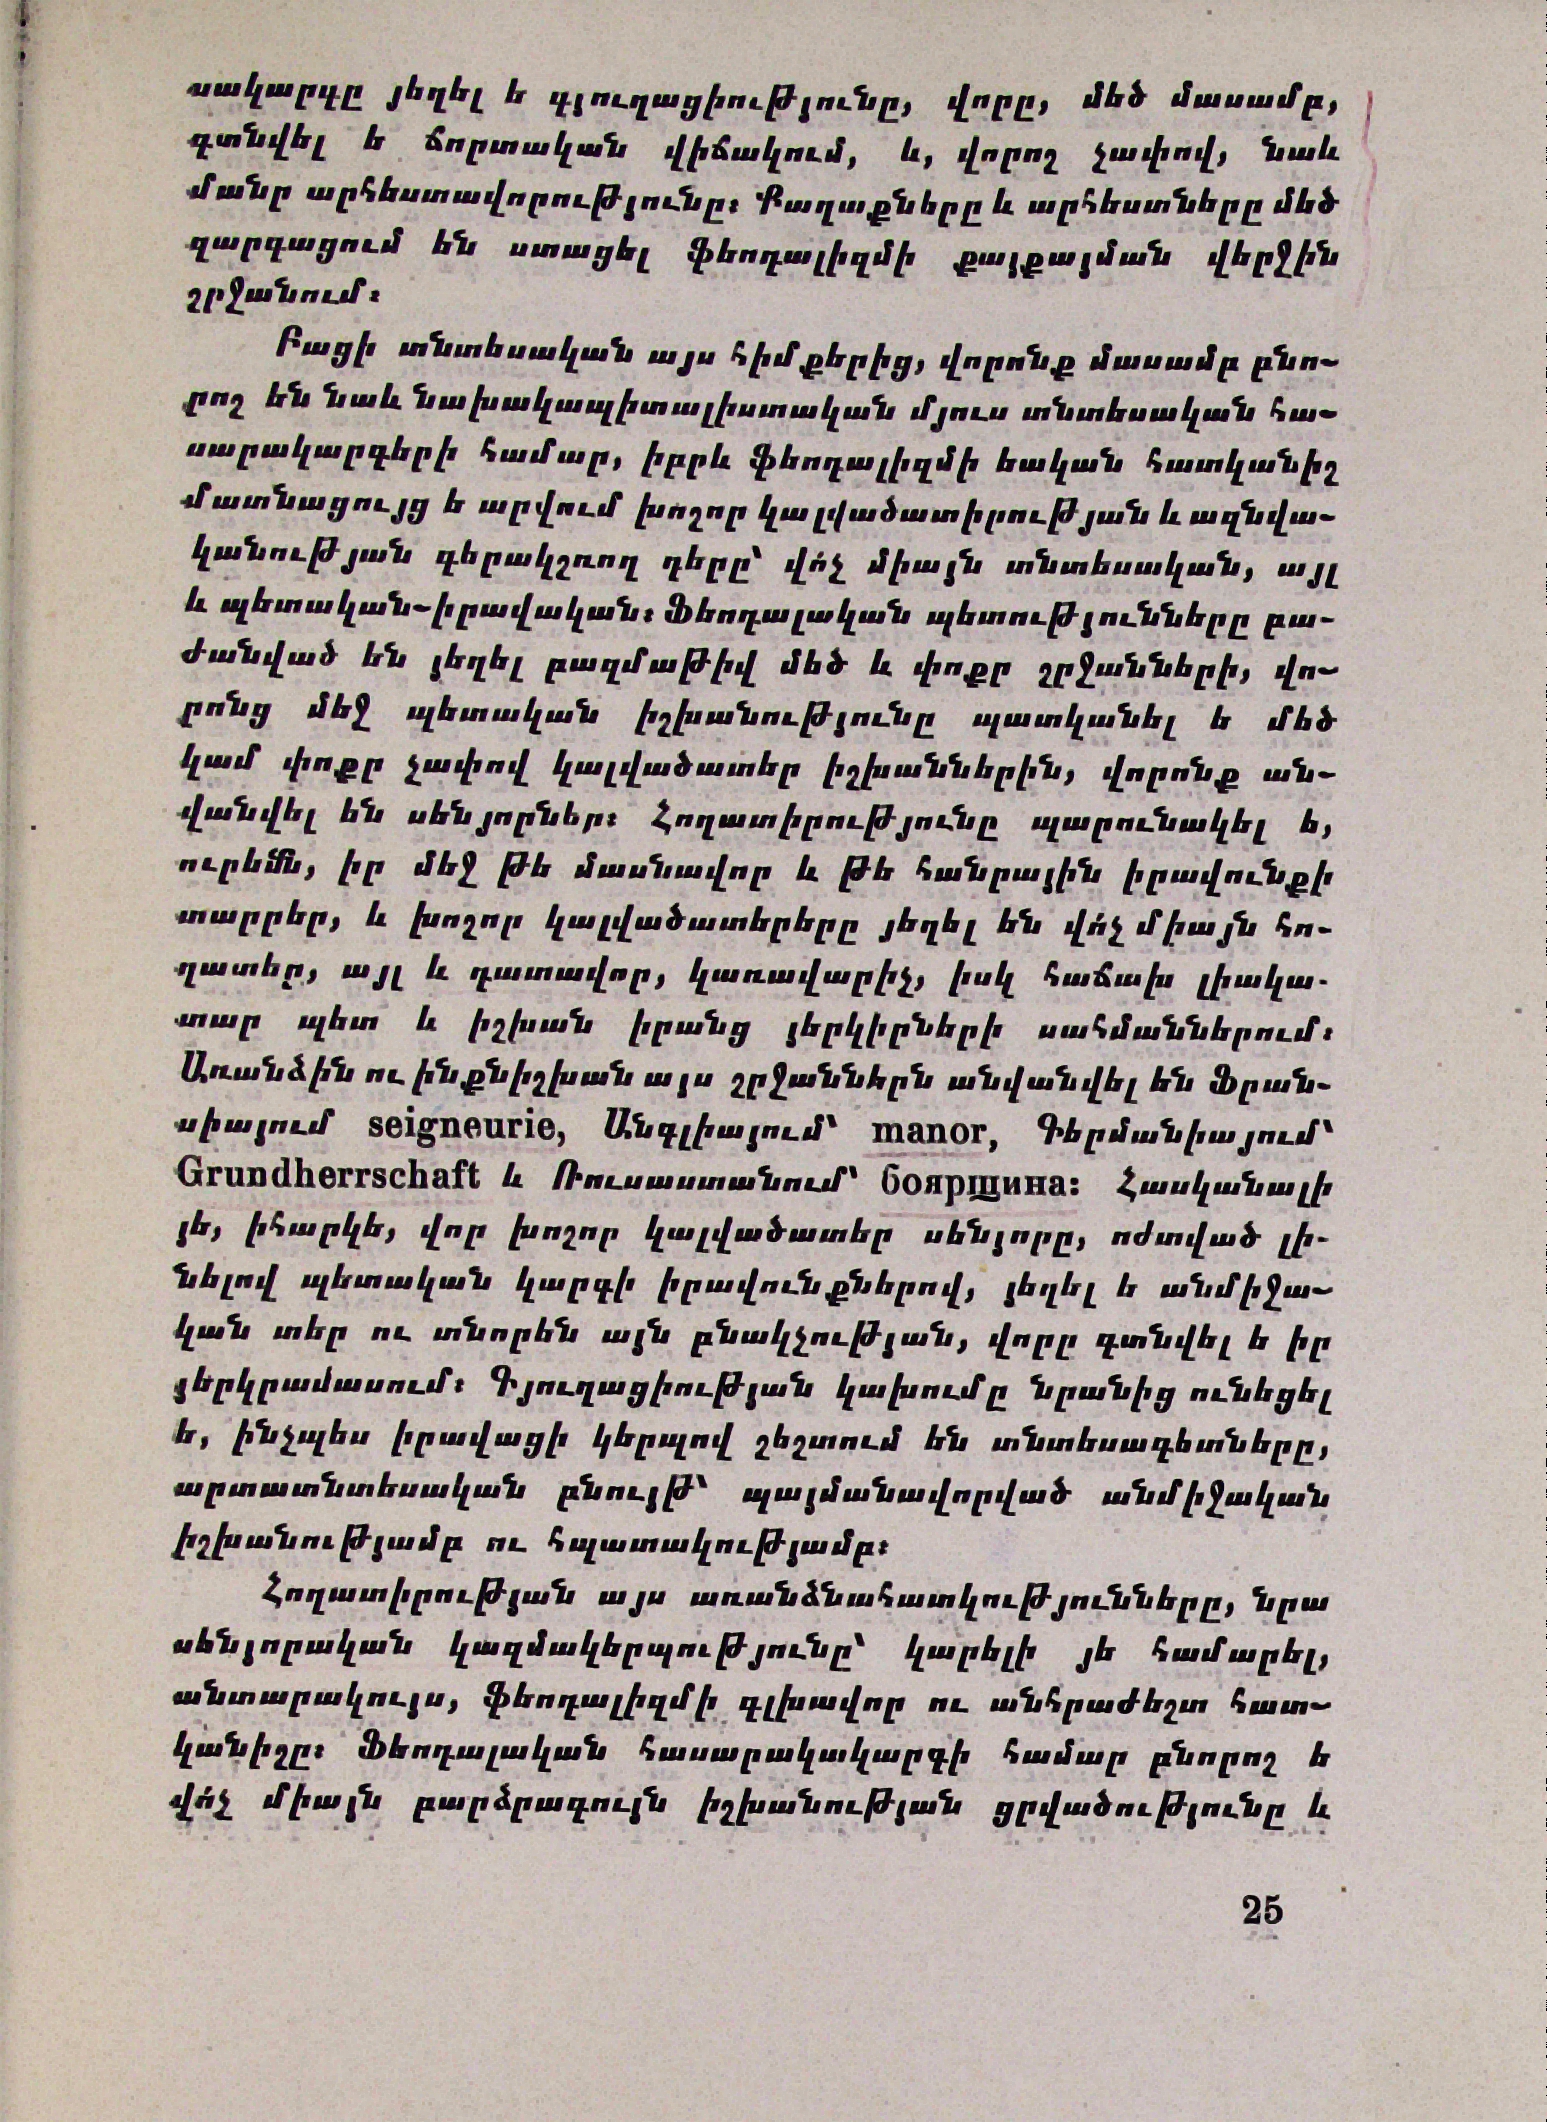 սակարգը յեղել ե գյուղացիությունը, վորը, մեծ մասամբ,
գտնվել ե ճորտական վիճակում, և, վորոշ չափով, նաև
մանր արհեստավորությունը։ Քաղաքները և արհեստները մեծ
զարգացում են ստացել ֆեոդալիզմի քայքայման վերջին
շրջանում։
Բացի տնտեսական այս հիմքերից, վորոնք մասամբ բնո-
րոշ են նաև նախակապիտալիստական մյուս տնտեսական հա-
սարակարգերի համար, իբրև ֆեոդալիզմի եական հատկանիշ
մատնացույց ե արվում խոշոր կալվածատիրության և ազնվա-
կանության գերակշռող դերը՝ վո՛չ միայն տնտեսական, այլ
և պետական-իրավական։ Ֆեոդալական պետությունները բա-
ժանված են յեղել բազմաթիվ մեծ և փոքր շրջանների, վո-
րոնց մեջ պետական իշխանությունը պատկանել ե մեծ
կամ փոքր չափով կալվածատեր իշխաններին, վորոնք ան-
վանվել են սենյորներ։ Հողատիրությունը պարունակել ե,
ուրեմն, իր մեջ թե մասնավոր և թե հանրային իրավունքի
տարրեր, և խոշոր կալվածատերերը յեղել են վո՛չ միայն հո-
ղատեր, այլ և դատավոր, կառավարիչ, իսկ հաճախ լիակա-
տար պետ և իշխան իրանց յերկիրների սահմաններում։
Առանձին ու ինքնիշխան այս շրջաններն անվանվել են Ֆրան-
սիայում seigneurie, Անգլիայում՝ manor, Գերմանիայում՝
Grundherrschaft և Ռուսաստանում՝ боярщина։ Հասկանալի
յե, իհարկե, վոր խոշոր կալվածատեր սենյորը, ոժտված լի-
նելով պետական կարգի իրավունքներով, յեղել ե անմիջա-
կան տեր ու տնորեն այն բնակչության, վորը գտնվել ե իր
յերկրամասում։ Գյուղացիության կախումը նրանից ունեցել
ե, ինչպես իրավացի կերպով շեշտում են տնտեսագետները,
արտատնտեսական բնույթ՝ պայմանավորված անմիջական
իշխանությամբ ու հպատակությամբ։
Հողատիրության այս առանձնահատկությունները, նրա
սենյորական կազմակերպությունը՝ կարելի յե համարել,
անտարակույս, ֆեոդալիզմի գլխավոր ու անհրաժեշտ հատ-
կանիշը։ Ֆեոդալական հասարակակարգի համար բնորոշ ե
վո՛չ միայն բարձրագույն իշխանության ցրվածությունը և
25